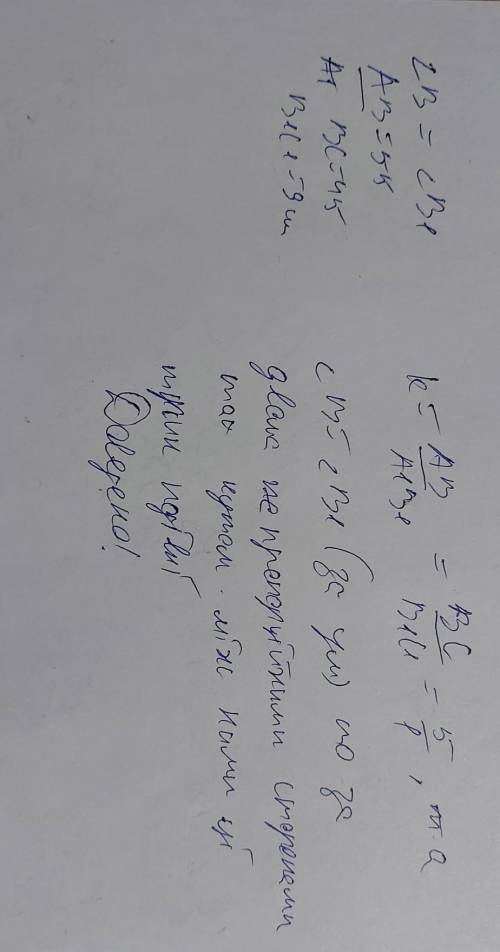 ∠B = ∠B1
AB = 55
A1 BC = 45
B1C1 = 9 см
k = AB/A1B1 = BC/B1C1 = 5/1, т-а
∠B = ∠B1 (за ум) то за
двома пропорційними сторонами
та кутом між ними ці
трик подібні
Доведено!